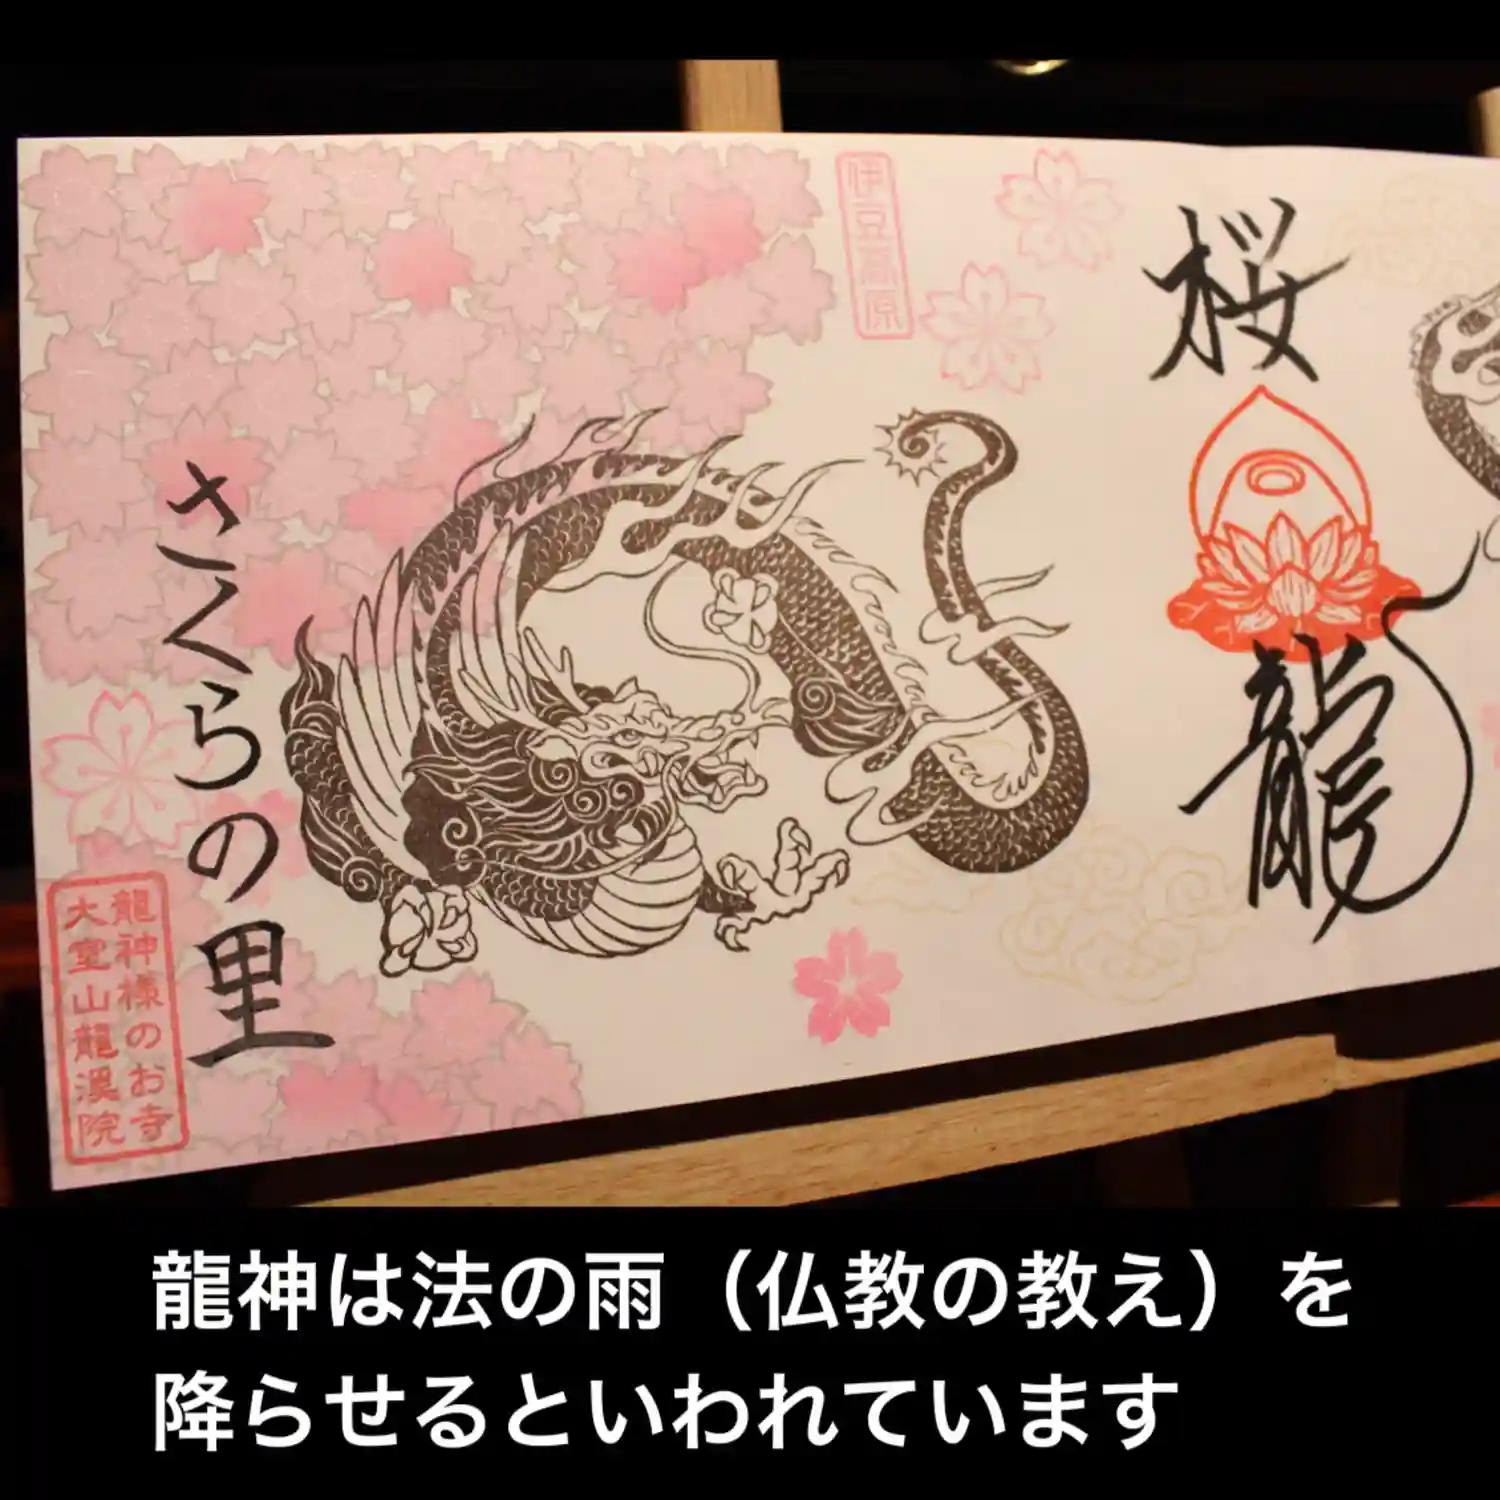 伊豆高原
桜
龍
さくらの里
龍神様のお寺
大室山龍渓院
龍神は法の雨（仏教の教え）を
降らせるといわれています